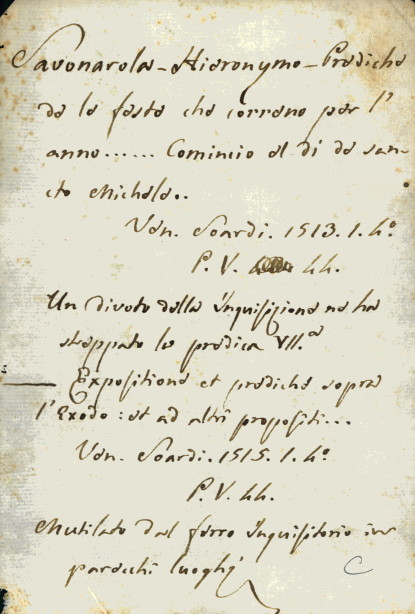 Savonarola - Hieronymo - Prediche
de le feste che correno per l'
anno...... Comincio al di de san-
cto Michele..
Ven. Soardi. 1513. 1. 4º
P. V. hh.
Un divoto della Inquisizione ne ha
strappato la predica VII.ª
Expositione et prediche sopra
l'Exodo: et ad altri propositi...
Ven. Soardi. 1515. 1. 4º
P. V. hh.
Mutilato dal ferro Inquisitorio in
parecchi luoghi
C